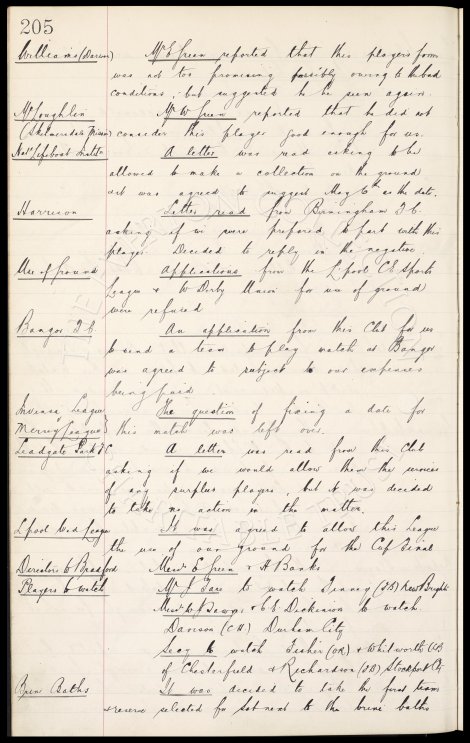 205
Williams (Darwen) Mr E Green reported that this players form
was not too promising possibly owing to the bad
conditions, but suggested to be seen again.
McLoughlin Mr W Green reported that he did not
(Skelmersdale) consider this player good enough for us.
Natl Lifeboat Instit A letter was read asking to be
allowed to make a collection on the ground
& it was agreed to suggest May 6th as the date.
Harrison Letter read from Birmingham F.C.
asking if we were prepared to part with this
player. Decided to reply in the negative.
Use of Ground Applications from the L'pool CE Sports
League & W Derby Union for use of ground
were refused
Bangor F.C. An application from this Club for us
to send a team to play match at Bangor
was agreed to subject to our expenses
being paid
League The question of fixing a date for
League this match was left over.
Leadgate Park FC A letter was read from this Club
asking if we would allow them the services
of any surplus players, but it was decided
to take no action in the matter.
L'pool Wed League It was agreed to allow this League
the use of our ground for the Cup Final
Directors to Bradford Messrs E Green & A Banks
Players to watch Mr J to watch (FB) New Brighton
Messrs & CE Dickinson to watch
Davison (CH) Durham City
Secy to watch Fisher (OR) & Whitworth
of Chesterfield & Richardson Stockport Cty
Brine Baths It was decided to take the first team
& reserve selected for Sat next to the brine baths